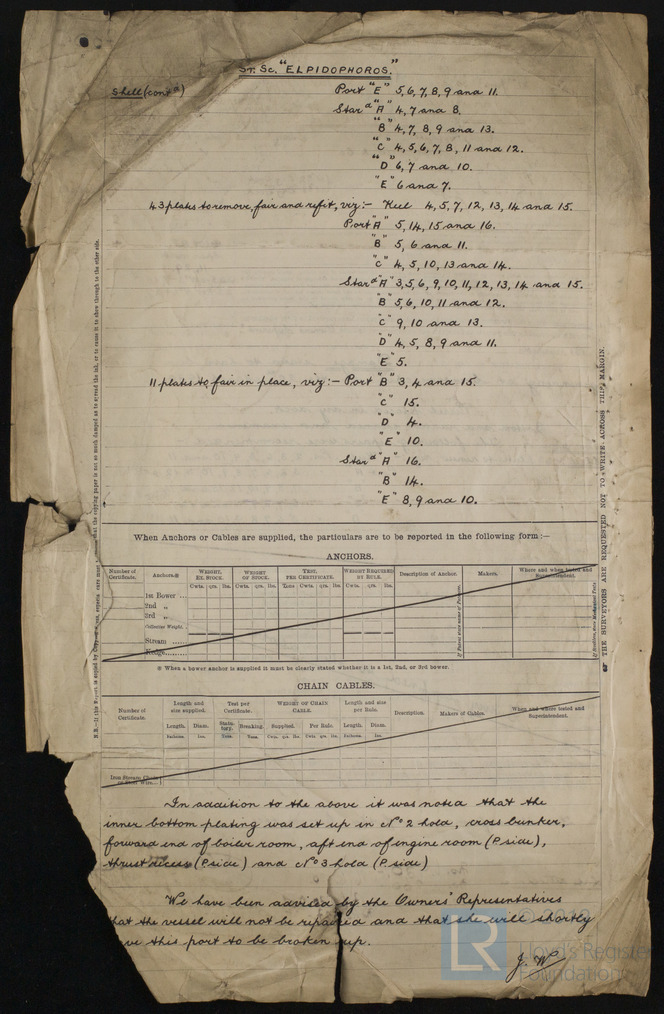 St. Sc. "ELPIDOPHOROS."
Shell (contd) Port "E" 5, 6, 7, 8, 9 and 11.
Stard "A" 4, 7 and 8.
"B" 4, 7, 8, 9 and 13.
"C" 4, 5, 6, 7, 8, 11 and 12.
"D" 6, 7 and 10.
"E" 6 and 7.
43 plates to remove, fair and refit, viz:- Keel 4, 5, 7, 12, 13, 14 and 15.
Port "A" 5, 14, 15 and 16.
"B" 5, 6 and 11.
"C" 4, 5, 10, 13 and 14.
Stard "A" 3, 5, 6, 9, 10, 11, 12, 13, 14 and 15.
"B" 5, 6, 10, 11 and 12.
"C" 9, 10 and 13.
"D" 4, 5, 8, 9 and 11.
"E" 5.
11 plates to fair in place, viz:- Port "B" 3, 4 and 15.
"C" 15.
"D" 4.
"E" 10.
Stard "A" 16.
"B" 14.
"E" 8, 9 and 10.
When Anchors or Cables are supplied, the particulars are to be reported in the following form:—
ANCHORS.
Number of Certificate. Anchors.※ WEIGHT, EX. STOCK. WEIGHT OF STOCK. TEST, PER CERTIFICATE. WEIGHT REQUIRED BY RULE. Description of Anchor. Makers. Where and when tested and Superintendent.
Cwts. qrs. lbs. Cwts. qrs. lbs. Tons Cwts. qrs. lbs. Cwts. qrs. lbs.
1st Bower ...
2nd „
3rd „
Collective Weight.
Stream ......
Kedge......
※ When a bower anchor is supplied it must be clearly stated whether it is a 1st, 2nd, or 3rd bower.
CHAIN CABLES.
Number of Certificate. Length and size supplied. Test per Certificate. WEIGHT OF CHAIN CABLE. Length and size per Rule. Description. Makers of Cables. Where and where tested and Superintendent.
Length. Diam. Statutory. Breaking. Supplied. Per Rule. Length. Diam.
Fathoms. Ins. Tons. Tons. Cwts. qrs. lbs. Cwts. qrs. lbs. Fathoms. Ins.
Iron Stream Chain or Steel Wire...
In addition to the above it was noted that the
inner bottom plating was set up in No 2 hold, cross bunker,
forward end of boiler room, aft end of engine room (P side),
thrust recess (P side) and No 3 hold (P side)
We have been advised by the Owners' Representatives
that the vessel will not be repaired and that she will shortly
this port to be broken up.
J. W.
THE SURVEYORS ARE REQUESTED NOT TO WRITE ACROSS THIS MARGIN.
LR Lloyd's Register Foundation